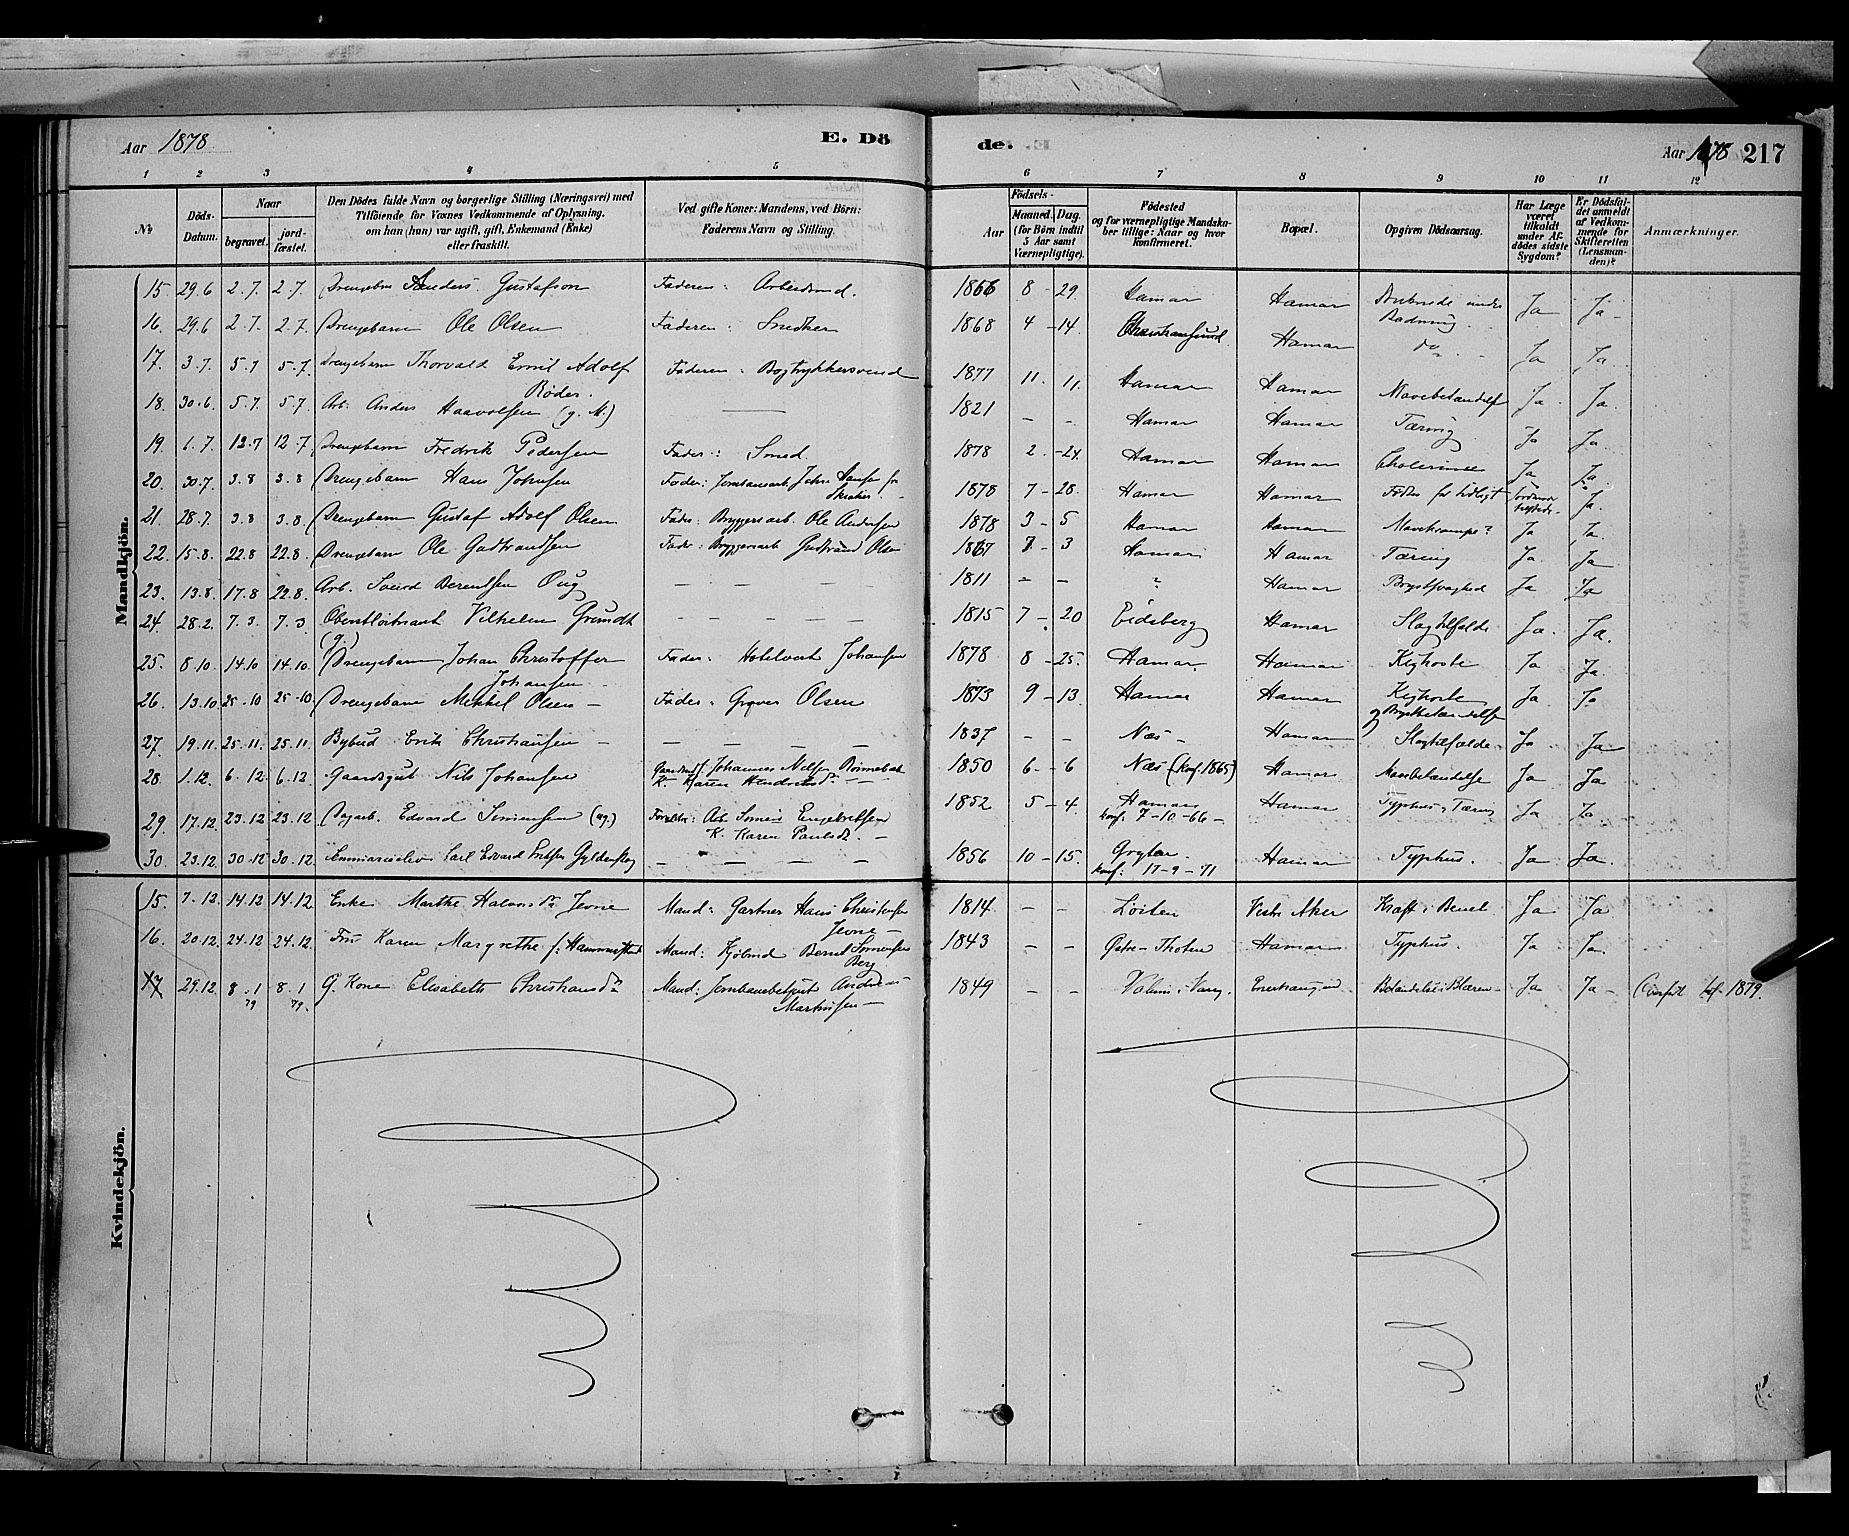 Aar 1878 E. Döde. Aar 1878 217
1 2 3 4 5 6 7 8 9 10 11 12
№ Döds-Datum. Naar begravet. jordfæstet. Den Dödes fulde Navn og borgerlige Stilling (Næringsvei) med Tilföiende for Voxnes Vedkommende af Oplysning, om han (hun) var ugift, gift, Enkemand (Enke) eller fraskilt. Ved gifte Koner: Mandens, ved Börn: Faderens Navn og Stilling. Aar Födsels- Maaned. Dag. (for Börn indtil 5 Aar samt Værnepligtige). Födested og for værnepligtige Mandskaber tillige: Naar og hvor konfirmeret. Bopæl. Opgiven Dödsaarsag. Har Læge været tilkaldt under Afdödes sidste Sygdom? Er Dödsfaldet anmeldt af Vedkommende for Skifteretten (Lensmanden)? Anmærkninger.
Mandkjön.
15. 29.6 2.7. 2.7. Drengebn Gustafson Faderen: Arbeidsmd. 1866 8 - 29 Hamar Hamar Druknede under Badning Ja Ja
16. 29.6 2.7. 2.7. Drengebarn Ole Olsen Faderen: Snedker 1868 4 - 14. Christiansund Hamar do Ja Ja
17. 3.7. 5.7 5.7. Drengebarn Thorvald Emil Adolf Røder. Faderen: Bogtrykkersvend 1877 11. 11. Hamar Hamar Mavebetændelse Ja Ja.
18. 30.6. 5.7. 5.7. Arb. Anders Haavolsen (g. M.) 1821 - - Hamar Hamar Tæring Ja Ja
19. 6.7. 12.7 12.7 Drengebarn Fredrik Pedersen Fader: Smed. 1878 2. - 24. Hamar Hamar Cholerine Ja Ja
20. 30.7. 3.8 3.8 Drengebarn Hans Johnsen Fader: Jernbanearb. John Hansen fr. 1878 7 - 28. Hamar Hamar Fødtes for tidligt Ja.
21. 28.7. 3.8 3.8. Drengebarn Gustaf Adolf Olsen Fader: Bryggeriarb. Ole Andersen 1878 3 - 5 Hamar Hamar Mavekrampe? Ja Ja.
22. 15.8. 22.8 22.8. Drengebarn Ole Gudbrandsen Fader: Bryggeriarb Gudbrand Olsen 1867 7 - 3 Hamar Hamar Tæring Ja. Ja
23. 13.8. 17.8 22.8. Arb. Berentsen 1811 - - ? Hamar Brystsvaghed Ja Ja
24. 28.2. 7.3. 7.3 Oberstløitnant Vilhelm Grundt (g.) 1815 7 - 20 Eidsberg Hamar Slagtilfælde Ja. Ja.
25. 8.10. 14.10 14.10. Drengebarn Johan Christoffer Johansen Fader: Hotelvert Johansen 1878 8 - 25. Hamar Hamar Kighoste Ja Ja
26. 13.10 25.10 25.10 Drengebarn Mikkel Olsen Fader: Olsen 1873 9 - 13. Hamar Hamar Kighoste og Brystbetændelse Ja Ja
27. 19.11. 25.11. 25.11. Bybud Erik Christiansen 1837 - - Næs Hamar Slagtilfælde. Ja Ja
28. 1.12. 6.12. 6.12. Gaardsgut Nils Johansen Johannes Nilsen K. Karen 1850 6. - 6 Næs (Konf. 1865) Hamar Mavebetændelse Ja Ja
29. 17.12. 23.12 23.12. Dagarb. Edvard Simensen (ug.) Forældre: Arb. Simen Engebretsen K. Karen Paulsd. 1852 5 - 4. Hamar konf: 7-10-66 Hamar Typhus, Tæring Ja Ja
30. 23.12. 30.12 30.12. Seminarieelev Carl Edvard 1856 10 - 15. Konf: 17-9-71 Hamar Typhus. Ja Ja.
Kvindekjön.
15. 7.12. 14.12 14.12. Enke Marthe Halvorsdr Jevne Mand: Gartner Hans Christensen Jevne 1814 - - Løiten Vestre Aker Kræft i Benet Ja Ja
16. 20.12. 24.12 24.12. Fru Karen Margrethe f. Hammerstad Mand: Kjøbmd Bernt Berg 1843 - - Østre-Thoten Hamar Typhus. Ja Ja.
17 29.12. 8.1 79 8.1 79. G. Kone Elisabeth Christiansdr Mand: Jernbanebetjent Andreas Martinsen 1849 - - i Vang. Betændelse i Blæren Ja Ja 1879.